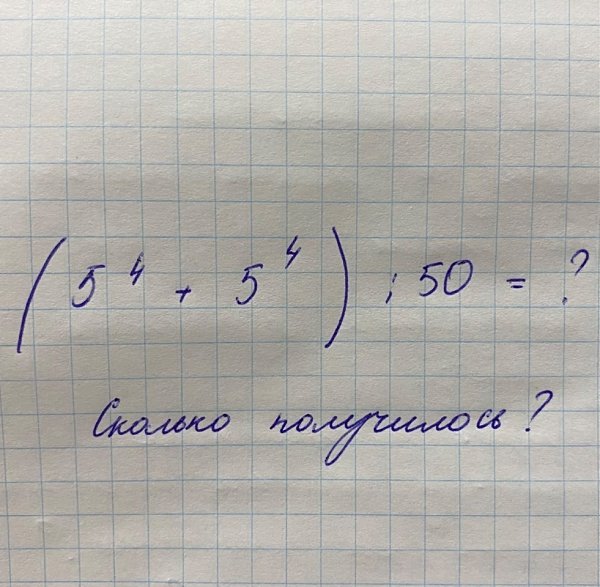 (5⁴ + 5⁴) : 50 = ?
Сколько получилось?